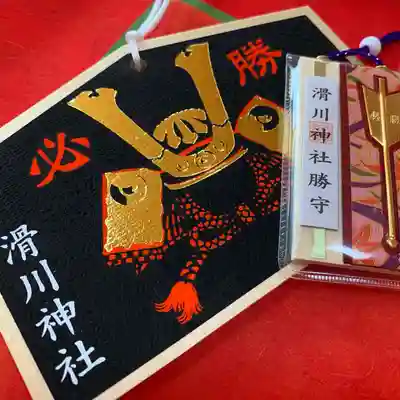 必勝
滑川神社
滑川神社勝守